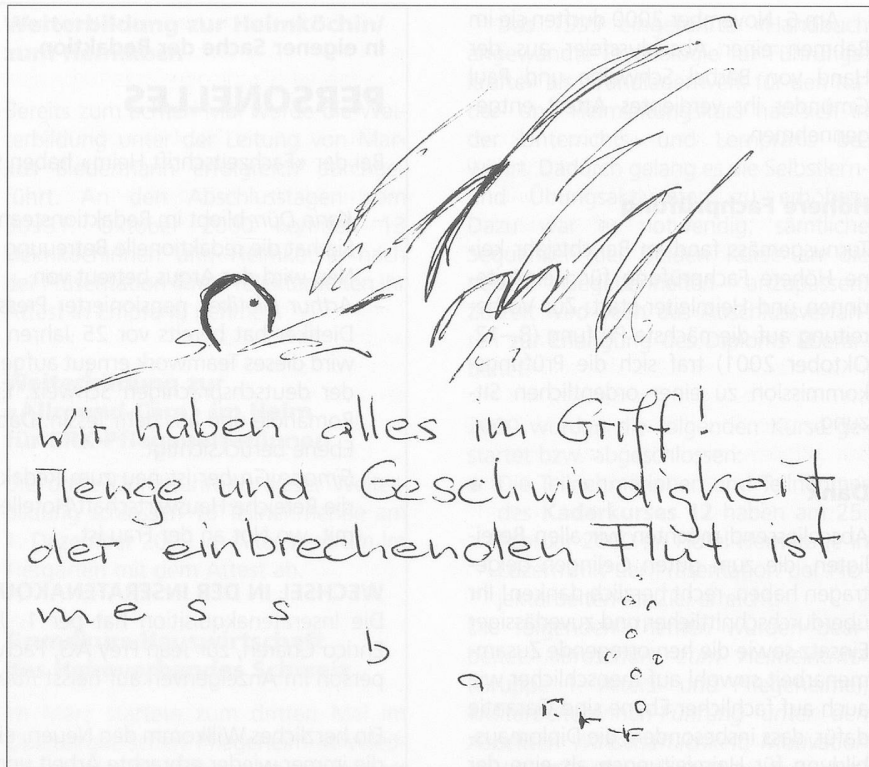 Wir haben alles im Griff!
Menge und Geschwindigkeit
der einbrechenden Flut ist
m e s s
b